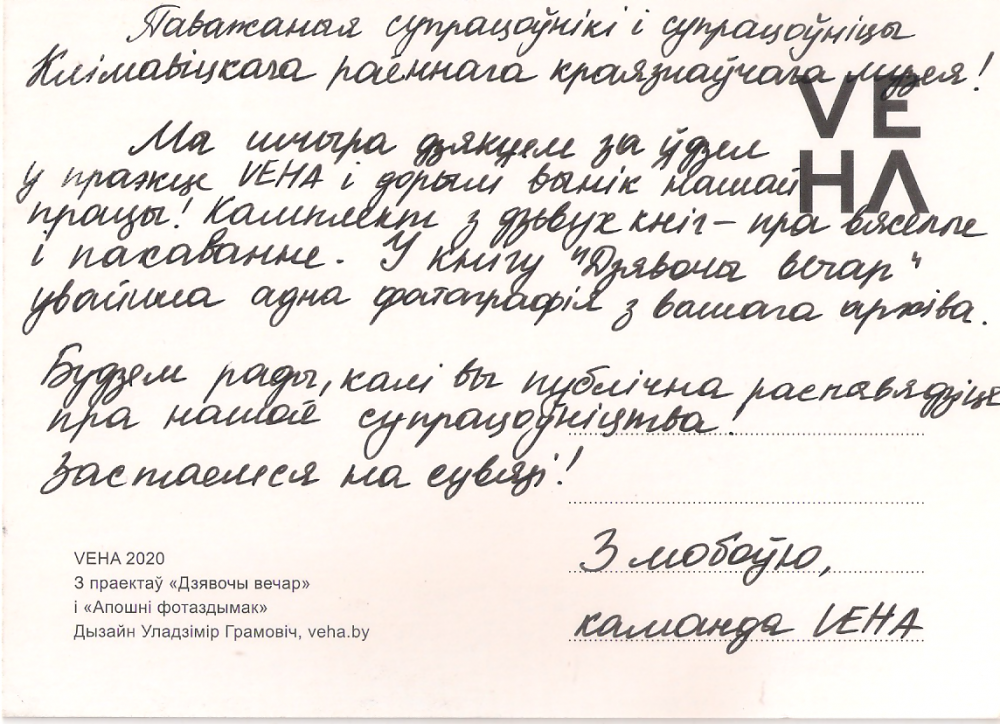 Паважаныя супрацоўнікі і супрацоўніцы
Клімавіцкага раённага краязнаўчага музея!
VE
HA
Мы шчыра дзякуем за ўдзел
у праэкце VEHA і дорым вынік нашай
працы! Камплект з дзвух кніг – пра вяселле
і пахаванне. У кнігу "Дзявочы вечар"
увайшла адна фотаграфія з вашага архіва.
Будзем рады, калі вы публічна распавядзіце
пра нашае супрацоўніцтва.
Застаемся на сувязі!
З любоўю,
каманда VEHA
VEHA 2020
З праектаў «Дзявочы вечар»
і «Апошні фотаздымак»
Дызайн Уладзімір Грамовіч, veha.by